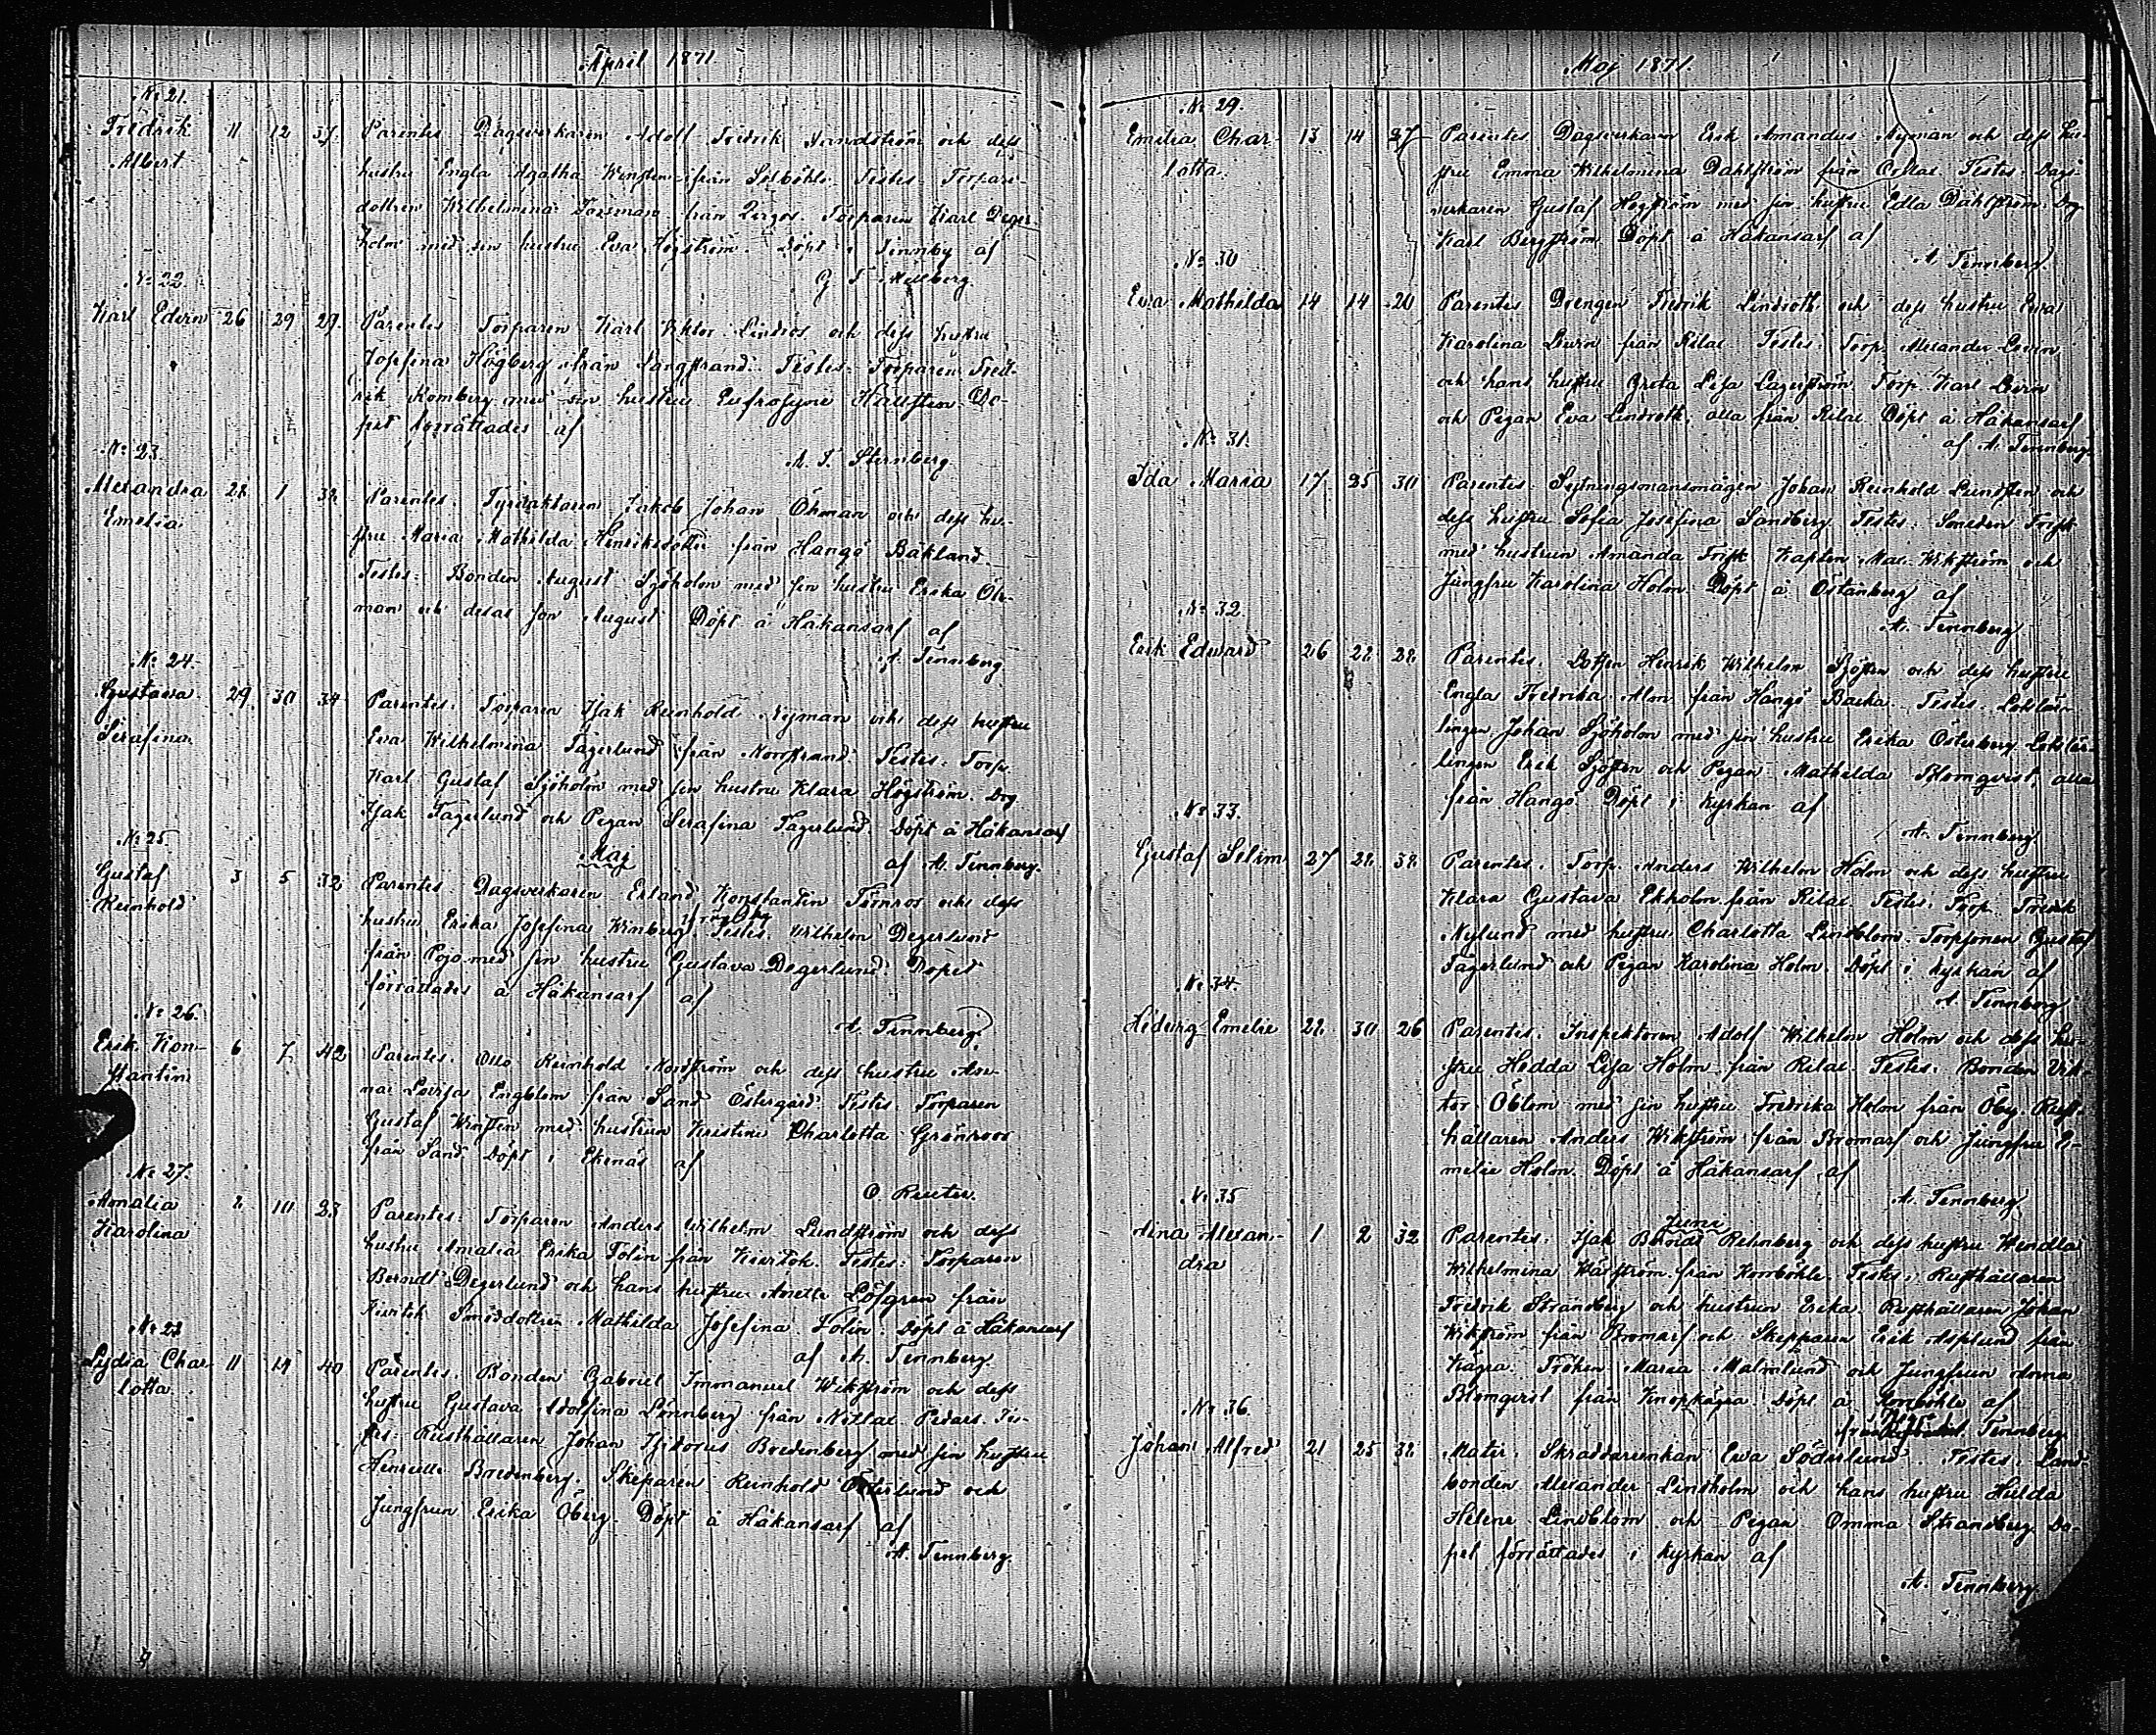 April 1871
No 21.
Fredrik 11 12 37 Parentes Dagsverkaren Adolf Fredrik och dess
Albert hustru Engla Agatha från Testes Torpare-
dottren Wilhelmina från Torparen Karl Deger-
holm med sin hustru Eva Högström. Döpt i Tennby af
G T Mellberg
No 22.
Karl Edvin 26 29 29. Parentes Torparen Karl Viktor Lindros och dess hustru
Josefina Högberg från Långstrand. Testes: Torparen Fred-
rik Romberg med sin hustru Eufrosyne Hallsten. Do-
pet förrättades af
A. T. Sternberg
No 23.
Alexandra 28 1 32 Parentes. Johan Öhman och dess hu-
Emelia stru Maria Mathilda Henriksdotter från Hangö Bakland.
Testes: Bonden August Sjöholm med sin hustru Erika Öh-
man och deras son August Döpt å Håkansarf af
A. Tennberg
No 24.
Gustava 29. 30 34 Parentes. Torparen Isak Reinhold Nyman och dess hustru
Serafina Eva Wilhelmina Fagerlund från Norrstrand. Testes: Torp.
Karl Gustaf Sjöholm med sin hustru Klara Högström. Drg
Isak Fagerlund och Pigan Serafina Fagerlund. Döpt å Håkansarf
af A. Tennberg.
Maj
No 25
Gustaf 3 5 32 Parentes Dagsverkaren Erland Konstantin Törnros och dess
Reinhold hustru Erika Josefina Winberg Testes. Wilhelm Degerlund
från Pojo med sin hustru Gustava Degerlund. Dopet
förrättades å Håkansarf af
A. Tennberg
No 26.
Erik Kon- 6 7 42 Parentes. Otto Reinhold Nordström och dess hustru An-
stantin na Lovisa Engblom från Sand Östergård. Testes. Torparen
Gustaf Winsten med hustrun Kristina Charlotta Grönroos
från Sand Döpt i Ekenäs af
O Reuter.
No 27.
Amalia 2 10 23 Parentes: Torparen Anders Wilhelm Lundström och dess
Karolina hustru Amalia Erika Tolin från Kivitok. Testes: Torparen
Berndt Degerlund och hans hustru Anette Löfgren från
Kivitok Smeddottren Mathilda Josefina Tolin. Döpt å Håkansarf
af A. Tennberg.
No 28
Lydia Char- 11 14 40 Parentes. Bonden Gabriel Immanuel Wikström och dess
lotta hustru Gustava Adolfina Lönnberg från Nitlax Pedars. Tes-
tes: Rusthållaren Johan Isidorus Bredenberg med sin hustru
Henriette Bredenberg. Skeparen Reinhold Österlund och
Jungfrun Erika Öberg. Döpt å Håkansarf af
A. Tennberg.
Maj 1871.
No 29.
Emelia Char- 13 14 27 Parentes Dagsverkaren Erik Amandus Nyman och dess hu-
lotta. stru Emma Wilhelmina Dahlström från Testes: Dags-
verkaren Gustaf Högström med sin hustru Edla Dahlström. Drg
Karl Bergström Döpt å Håkansarf af
A. Tennberg.
No 30
Eva Mathilda 14 14 20 Parentes Drengen Fredrik Lindroth och dess hustru Eva
Karolina från Rilax Testes: Torp. Alexander
och hans hustru Greta Lisa Lagerström, Torp. Karl
och Pigan Eva Lindroth, alla från Rilax. Döpt å Håkansarf
af A. Tennberg.
No 31.
Ida Maria 17 25 30 Parentes. Johan Reinhold Lundsten och
dess hustru Sofia Josefina Sandberg. Testes: Smeden Frisk
med hustrun Amanda Frisk Kapten Wikström och
Jungfru Karolina Holm. Döpt å Östanberg af
A. Tennberg
No 32.
Erik Edward 26 28 28 Parentes. Lotsen Henrik Wilhelm Sjösten och dess hustru
Engla Fredrika Alm från Hangö Backa. Testes. Lotslär-
lingen Johan Sjöholm med sin hustru Erika Österberg. Lotslär-
lingen Erik Sjösten och Pigan Mathilda Blomqvist, alla
från Hangö. Döpt i kyrkan af
A. Tennberg.
No 33.
Gustaf Selim 27 28 32 Parentes. Torp. Anders Wilhelm Holm och dess hustru
Klara Gustava Ekholm från Rilax. Testes. Torp. Fredrik
Nylund med hustru Charlotta Lindblom. Torpsonen Gustaf
Fagerlund och Pigan Karolina Holm. Döpt i kyrkan af
A. Tennberg
No 34.
Hedvig Emelie 22 30 26 Parentes. Inspektoren Adolf Wilhelm Holm och dess hu-
stru Hedda Lisa Holm från Rilax. Testes. Bonden Vik-
tor Öblom med sin hustru Fredrika Holm från Öby. Rust-
hållaren Anders Wikström från Bromarf och Jungfru E-
melie Holm. Döpt å Håkansarf af
A. Tennberg.
Juni
No 35
Aina Alexan- 1 2 32 Parentes. Isak Berndt Rehnberg och dess hustru Wendla
dra Wilhelmina Wåström från Kombohle. Testes: Rusthållaren
Fredrik Strandberg och hustrun Erika. Rusthållaren Johan
Wikström från Bromarf och Skepparen Erik Asplund från
Kägra. Fröken Maria Malmlund och Jungfrun Anna
Blomqvist från Knopkägra. Döpt å Kombohle af
Tennberg
No 36.
Johan Alfred 21 25 38 Mater. Skräddareenkan Eva Söderlund. Testes: Land-
bonden Alexander Lindholm och hans hustru Hulda
Helene Lindblom och Pigan Emma Strandberg. Do-
pet förrättades i kyrkan af
A. Tennberg.